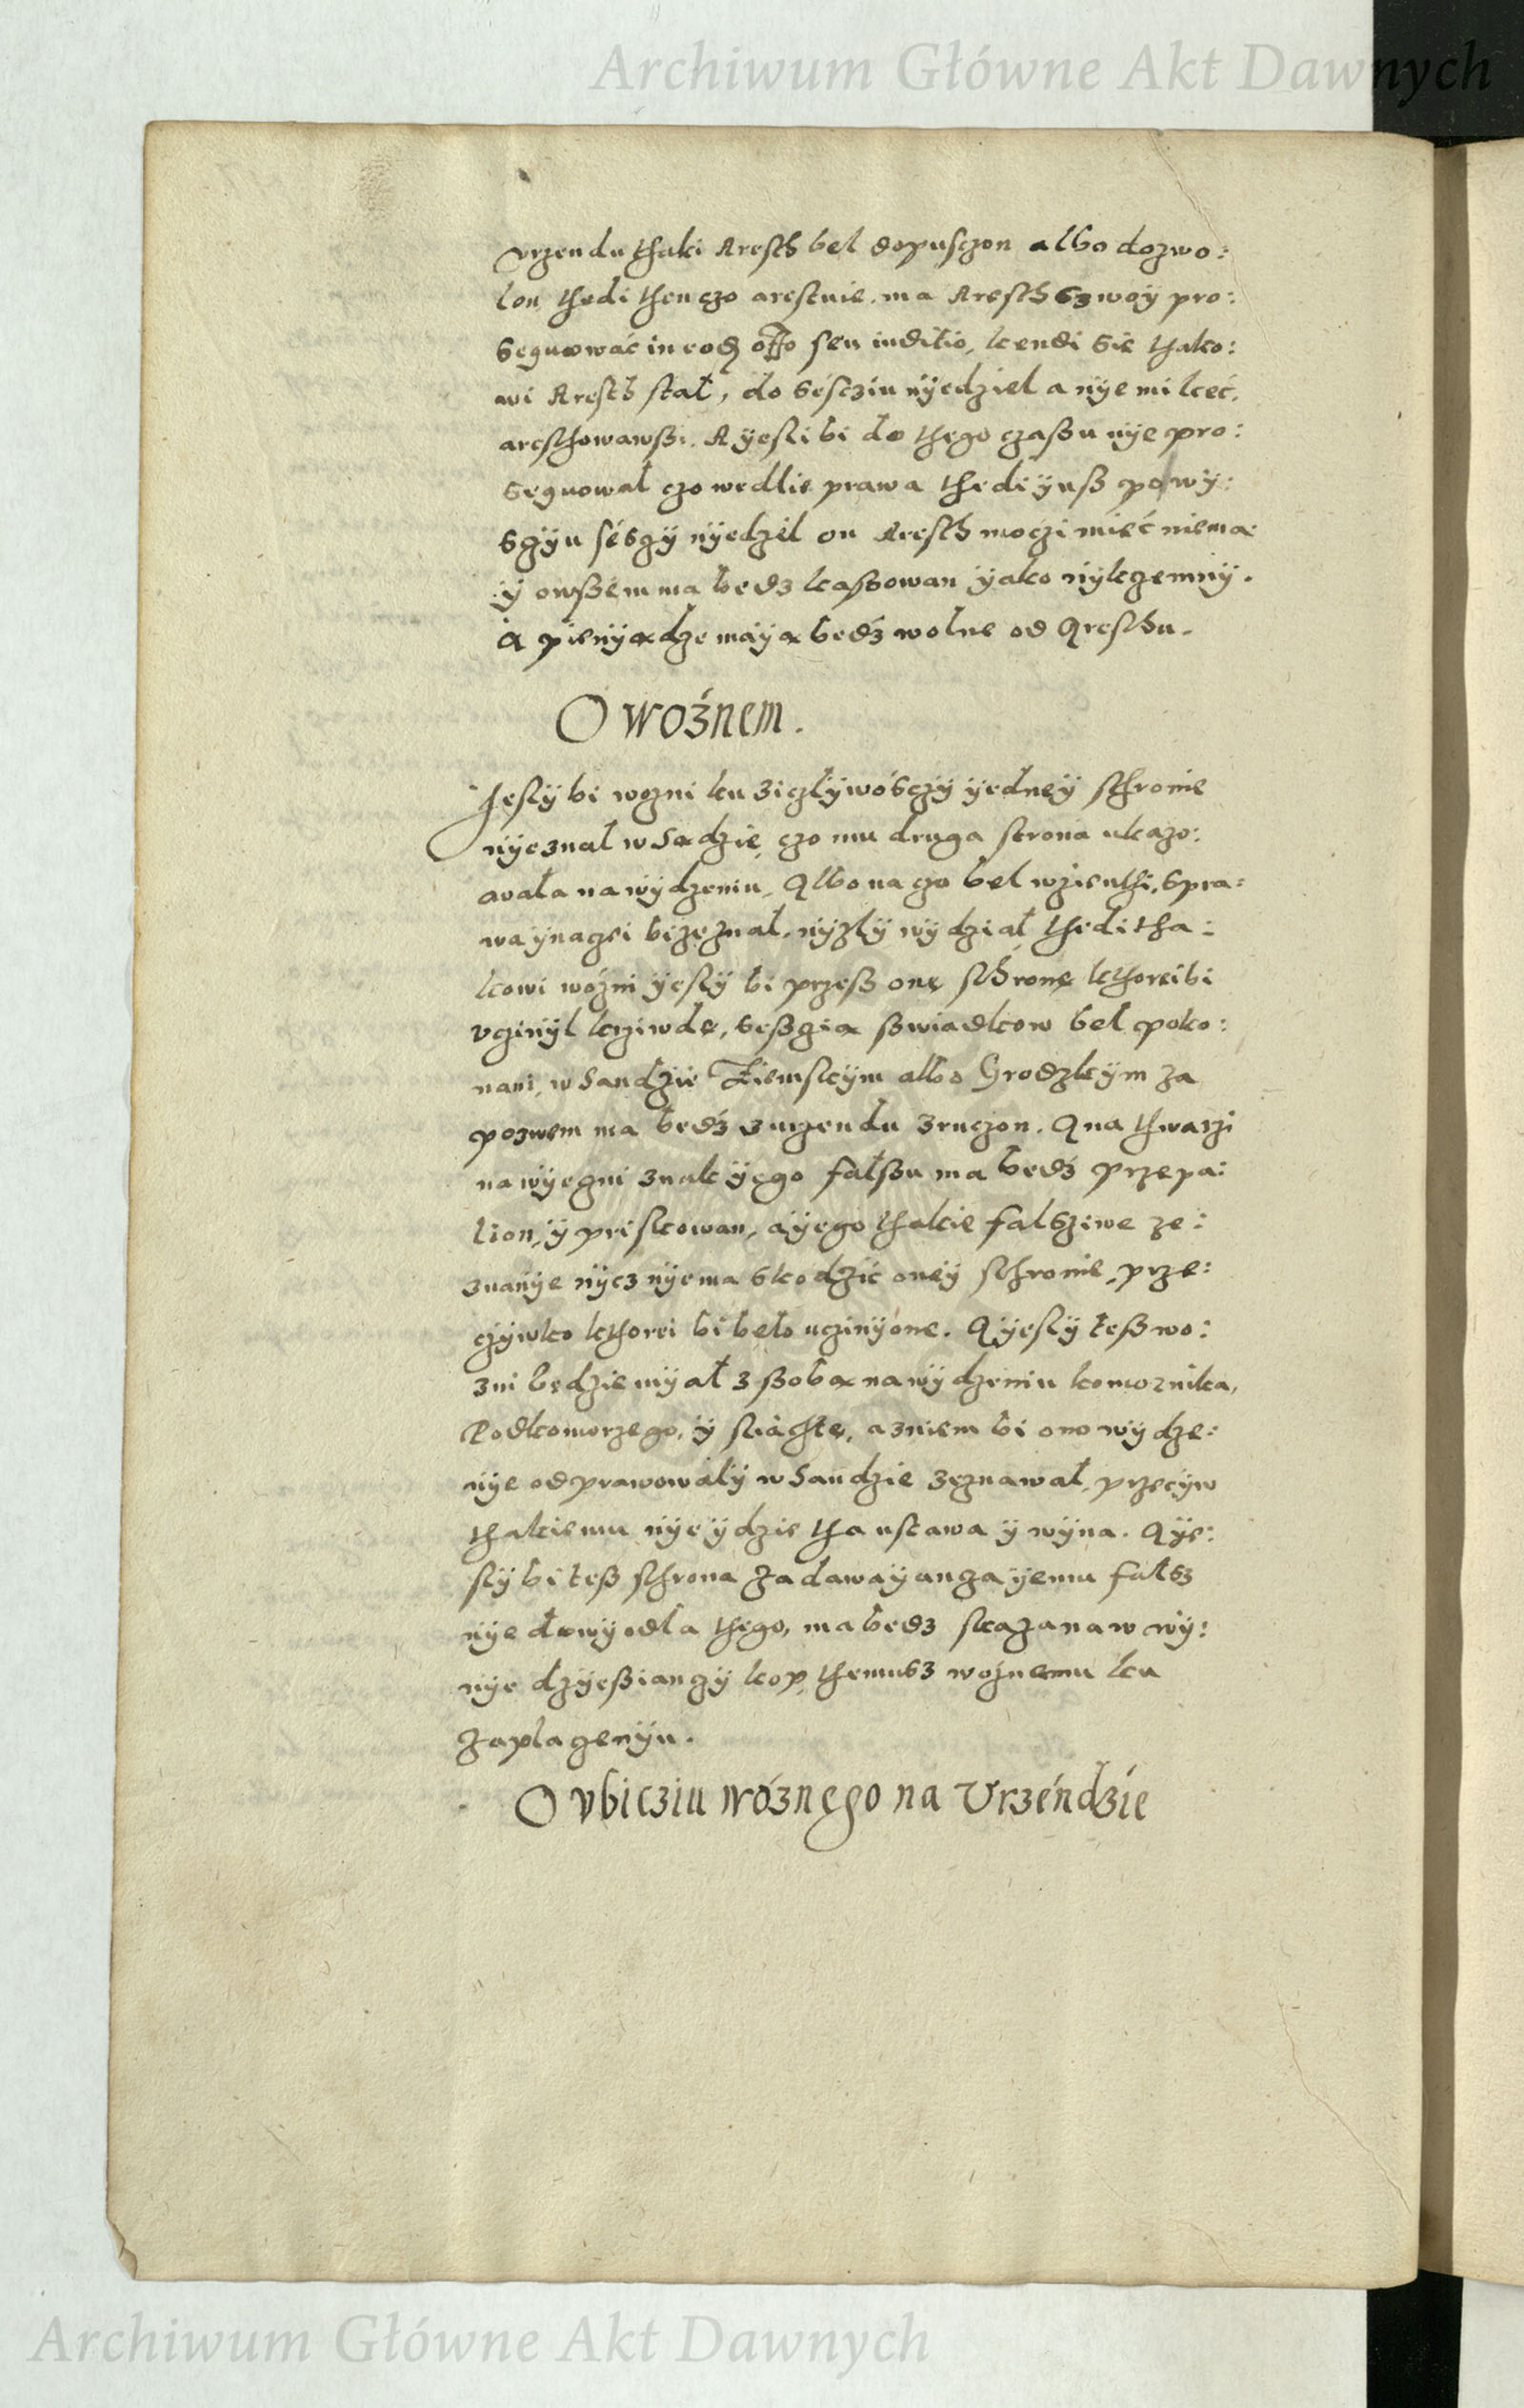 Archiwum Główne Akt Dawnych
vrzendu thaki Aresth bel dopusczon albo dozwo:
lon, thedi then czo arestuie. ma Aresth szwoÿ pro:
sequowác in eodẽ offo seu inditio, kendi sie thako:
wi Aresth stał, do sésczin nÿedziel a nÿe milceć.
aresthowawßi. A ÿesli bi do thego czaßu nÿe pro:
sequował czo wedlie prawa thedi ÿuß po wÿ:
sgÿu sésgÿ nÿedzil on Aresth moczi mieć niema
ÿ owßem ma bedz kaßowan ÿako nÿkczemnÿ.
A pienÿądze maÿą bedź wolne od Aresthu.
O woźnem.
Jeslÿ bi wozni ku ziczlÿwósczÿ ÿednéÿ sthronie
nÿe znał w Sądzie, czo mu druga strona ukazo:
wała na wÿdzeniu, Albo na czo bel wzienthi, spra:
waÿnaczei bi zeznał. nÿzlÿ wÿdział, thedi tha:
kowi wózni ÿeslÿ bi przeß onę sthronę kthoreibi
vczinÿł krziwdę, seßczią ßwiadkow bel poko:
nani, w Sandzie Ziemskÿm albo Grodzkÿm za
pozwem ma bedź z urzendu zruczon. A na thwarzi
na wÿegni znak ÿęgo falßu ma bedź przepa:
lion, ÿ priskowan, a ÿego thakie falsziwe ze:
znanÿe nÿcz nÿe ma skodzić onéÿ sthronie, prze:
czÿwko kthorei bi beło uczinÿóne. A ÿeslÿ teß wo:
zni bedzie mÿał z ßobą na wÿdzeniu komornika,
Podkomorzego, ÿ sliáchtę, a zniem bi ono wÿdze:
nÿe odprawowálÿ w Sandzie zeznawał, przecÿw
thakiemu nÿe ÿdzie tha ustawa ÿ wÿna. A ÿe:
slÿ bi teß sthrona zadawaÿanga ÿemu fałsz
nÿe dowÿodła thego, ma bedz skazana w wÿ:
nÿe dzÿeßiangÿ kop, themusz woźnemu ku
zaplagenÿu.
O vbicziu wóznego na Vrzéndzíe
Archiwum Główne Akt Dawnych